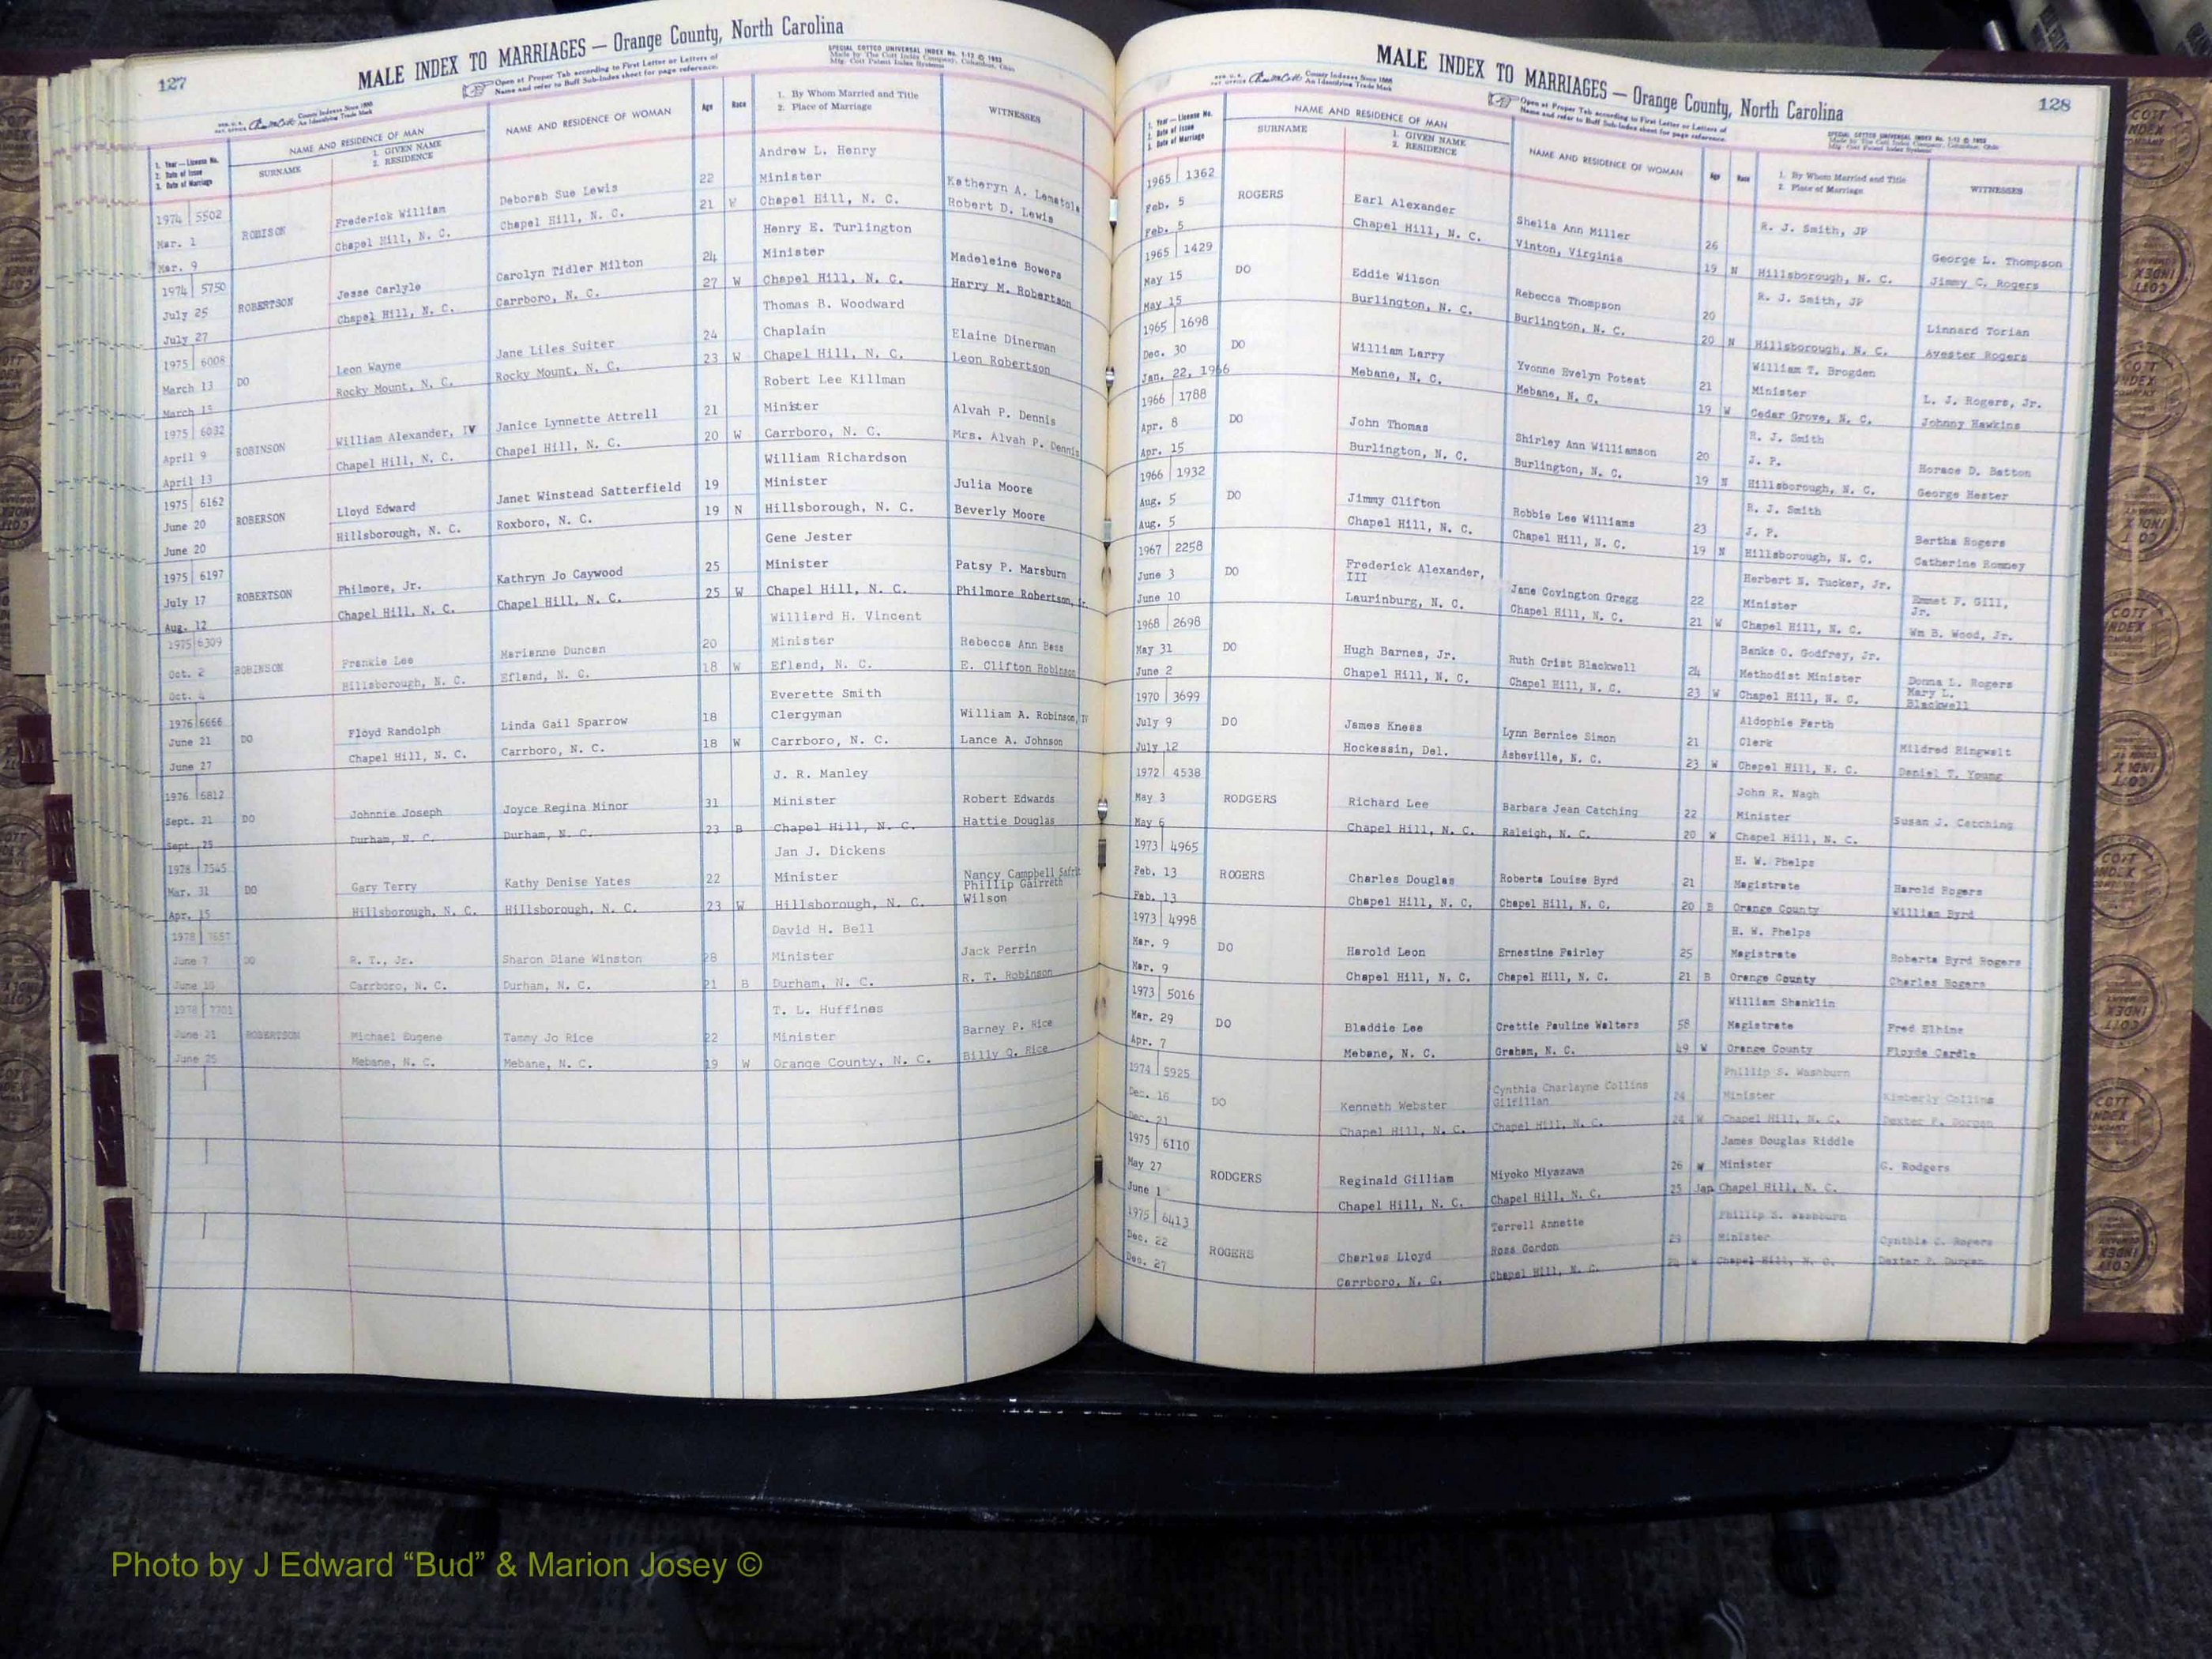 127
MALE INDEX TO MARRIAGES — Orange County, North Carolina
Open at Proper Tab according to First Letter or Letters of
Name and refer to Buff Sub-Index sheet for page reference.
SPECIAL COTTCO UNIVERSAL INDEX No. 1-12 © 1953
Made by The Cott Index Company, Columbus, Ohio
Mfg. Cott Patent Index Systems
County Indexes Since 1888
An Identifying Trade Mark
1. Year — License No.
2. Date of Issue
3. Date of Marriage
NAME AND RESIDENCE OF MAN
SURNAME
1. GIVEN NAME
2. RESIDENCE
NAME AND RESIDENCE OF WOMAN
Age
Race
1. By Whom Married and Title
2. Place of Marriage
WITNESSES
Andrew L. Henry
1974 5502 Deborah Sue Lewis 22 Minister Katheryn A.
Mar. 1 ROBISON Frederick William Chapel Hill, N. C. 21 W Chapel Hill, N. C. Robert D. Lewis
Mar. 9 Chapel Hill, N. C.
Henry E. Turlington
1974 5750 Carolyn Tidler Milton 24 Minister Madeleine Bowers
July 25 ROBERTSON Jesse Carlyle Carrboro, N. C. 27 W Chapel Hill, N. C. Harry M. Robertson
July 27 Chapel Hill, N. C.
Thomas B. Woodward
1975 6008 Jane Liles Suiter 24 Chaplain Elaine Dinerman
March 13 DO Leon Wayne Rocky Mount, N. C. 23 W Chapel Hill, N. C. Leon Robertson
March 15 Rocky Mount, N. C.
Robert Lee Killman
1975 6032 Janice Lynnette Attrell 21 Minister Alvah P. Dennis
April 9 ROBINSON William Alexander, IV Chapel Hill, N. C. 20 W Carrboro, N. C. Mrs. Alvah P. Dennis
April 13 Chapel Hill, N. C.
William Richardson
1975 6162 Janet Winstead Satterfield 19 Minister Julia Moore
June 20 ROBERSON Lloyd Edward Roxboro, N. C. 19 N Hillsborough, N. C. Beverly Moore
June 20 Hillsborough, N. C.
Gene Jester
1975 6197 Kathryn Jo Caywood 25 Minister Patsy P. Marsburn
July 17 ROBERTSON Philmore, Jr. Chapel Hill, N. C. 25 W Chapel Hill, N. C. Philmore Robertson, Jr.
Aug. 12 Chapel Hill, N. C.
Williard H. Vincent
1975 6309 Marianne Duncan 20 Minister Rebecca Ann Bass
Oct. 2 ROBINSON Frankie Lee Efland, N. C. 18 W Efland, N. C. E. Clifton Robinson
Oct. 4 Hillsborough, N. C.
Everette Smith
1976 6666 Linda Gail Sparrow 18 Clergyman William A. Robinson, IV
June 21 DO Floyd Randolph Carrboro, N. C. 18 W Carrboro, N. C. Lance A. Johnson
June 27 Chapel Hill, N. C.
J. R. Manley
1976 6812 Joyce Regina Minor 31 Minister Robert Edwards
Sept. 21 DO Johnnie Joseph Durham, N. C. 23 B Chapel Hill, N. C. Hattie Douglas
Sept. 25 Durham, N. C.
Jan J. Dickens
1978 7545 Kathy Denise Yates 22 Minister Nancy Campbell Safrit
Mar. 31 DO Gary Terry Hillsborough, N. C. 23 W Hillsborough, N. C. Phillip Gairreth
Apr. 15 Hillsborough, N. C. Wilson
David H. Bell
1978 7657 Sharon Diane Winston 28 Minister Jack Perrin
June 7 DO R. T., Jr. Durham, N. C. 21 B Durham, N. C. R. T. Robinson
June 10 Carrboro, N. C.
T. L. Huffines
1978 7701 Tammy Jo Rice 22 Minister Barney P. Rice
June 21 ROBERTSON Michael Eugene Mebane, N. C. 19 W Orange County, N. C. Billy O. Rice
June 25 Mebane, N. C.
128
MALE INDEX TO MARRIAGES — Orange County, North Carolina
Open at Proper Tab according to First Letter or Letters of
Name and refer to Buff Sub-Index sheet for page reference.
SPECIAL COTTCO UNIVERSAL INDEX No. 1-12 © 1953
County Indexes Since 1888
An Identifying Trade Mark
1. Year — License No.
2. Date of Issue
3. Date of Marriage
NAME AND RESIDENCE OF MAN
SURNAME
1. GIVEN NAME
2. RESIDENCE
NAME AND RESIDENCE OF WOMAN
Age
Race
1. By Whom Married and Title
2. Place of Marriage
WITNESSES
1965 1362 R. J. Smith, JP
Feb. 5 ROGERS Earl Alexander Shelia Ann Miller 26 George L. Thompson
Feb. 5 Chapel Hill, N. C. Vinton, Virginia 19 N Hillsborough, N. C. Jimmy C. Rogers
1965 1429 R. J. Smith, JP
May 15 DO Eddie Wilson Rebecca Thompson 20 Linnard Torian
May 15 Burlington, N. C. Burlington, N. C. 20 N Hillsborough, N. C. Avester Rogers
1965 1698 William T. Brogden
Dec. 30 DO William Larry Yvonne Evelyn Poteat 21 Minister L. J. Rogers, Jr.
Jan. 22, 1966 Mebane, N. C. Mebane, N. C. 19 W Cedar Grove, N. C. Johnny Hawkins
1966 1788 R. J. Smith
Apr. 8 DO John Thomas Shirley Ann Williamson 20 J. P. Horace D. Batton
Apr. 15 Burlington, N. C. Burlington, N. C. 19 N Hillsborough, N. C. George Hester
1966 1932 R. J. Smith
Aug. 5 DO Jimmy Clifton Robbie Lee Williams 23 J. P. Bertha Rogers
Aug. 5 Chapel Hill, N. C. Chapel Hill, N. C. 19 N Hillsborough, N. C. Catherine Romney
1967 2258 Herbert N. Tucker, Jr.
June 3 DO Frederick Alexander, III Jane Covington Gregg 22 Minister Emmet F. Gill, Jr.
June 10 Laurinburg, N. C. Chapel Hill, N. C. 21 W Chapel Hill, N. C. Wm B. Wood, Jr.
1968 2698 Banks O. Godfrey, Jr.
May 31 DO Hugh Barnes, Jr. Ruth Crist Blackwell 24 Methodist Minister Donna L. Rogers
June 2 Chapel Hill, N. C. Chapel Hill, N. C. 23 W Chapel Hill, N. C. Mary L. Blackwell
1970 3699 Aldophie Ferth
July 9 DO James Kness Lynn Bernice Simon 21 Clerk Mildred Ringwalt
July 12 Hockessin, Del. Asheville, N. C. 23 W Chapel Hill, N. C. Daniel T. Young
1972 4538 John R. Nagh
May 3 RODGERS Richard Lee Barbara Jean Catching 22 Minister Susan J. Catching
May 6 Chapel Hill, N. C. Raleigh, N. C. 20 W Chapel Hill, N. C.
1973 4965 H. W. Phelps
Feb. 13 ROGERS Charles Douglas Roberta Louise Byrd 21 Magistrate Harold Rogers
Feb. 13 Chapel Hill, N. C. Chapel Hill, N. C. 20 B Orange County William Byrd
1973 4998 H. W. Phelps
Mar. 9 DO Harold Leon Ernestine Fairley 25 Magistrate Roberta Byrd Rogers
Mar. 9 Chapel Hill, N. C. Chapel Hill, N. C. 21 B Orange County Charles Rogers
1973 5016 William Shanklin
Mar. 29 DO Bladdie Lee Crettie Pauline Walters 58 Magistrate Fred Elhine
Apr. 7 Mebane, N. C. Graham, N. C. 49 W Orange County Floyde Cardle
1974 5925 Phillip S. Washburn
Dec. 16 DO Kenneth Webster Cynthia Charlayne Collins Gilfillan 24 Minister Kimberly Collins
Dec. 21 Chapel Hill, N. C. Chapel Hill, N. C. 24 W Chapel Hill, N. C. Dexter P.
1975 6110 James Douglas Riddle
May 27 RODGERS Reginald Gilliam Miyoko Miyazawa 26 W Minister G. Rodgers
June 1 Chapel Hill, N. C. Chapel Hill, N. C. 25 Jap Chapel Hill, N. C.
1975 6413 Terrell Annette Phillip S. Washburn
Dec. 22 ROGERS Charles Lloyd Ross Gordon 29 Minister Cynthia C. Rogers
Dec. 27 Carrboro, N. C. Chapel Hill, N. C. W Chapel Hill, N. C. Dexter P.
Photo by J Edward “Bud” & Marion Josey ©